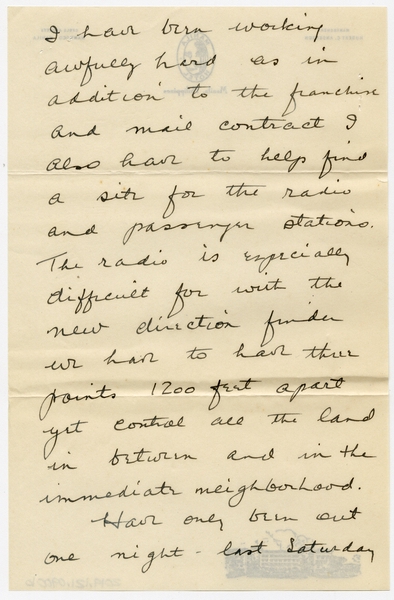 I have been working
awfully hard as in
addition to the franchise
and mail contract I
also have to help find
a site for the radio
and passenger stations.
The radio is especially
difficult for with the
new direction finder
we have to have three
points 1200 feet apart
yet control all the land
in between and in the
immediate neighborhood.
Have only been out
one night - last Saturday